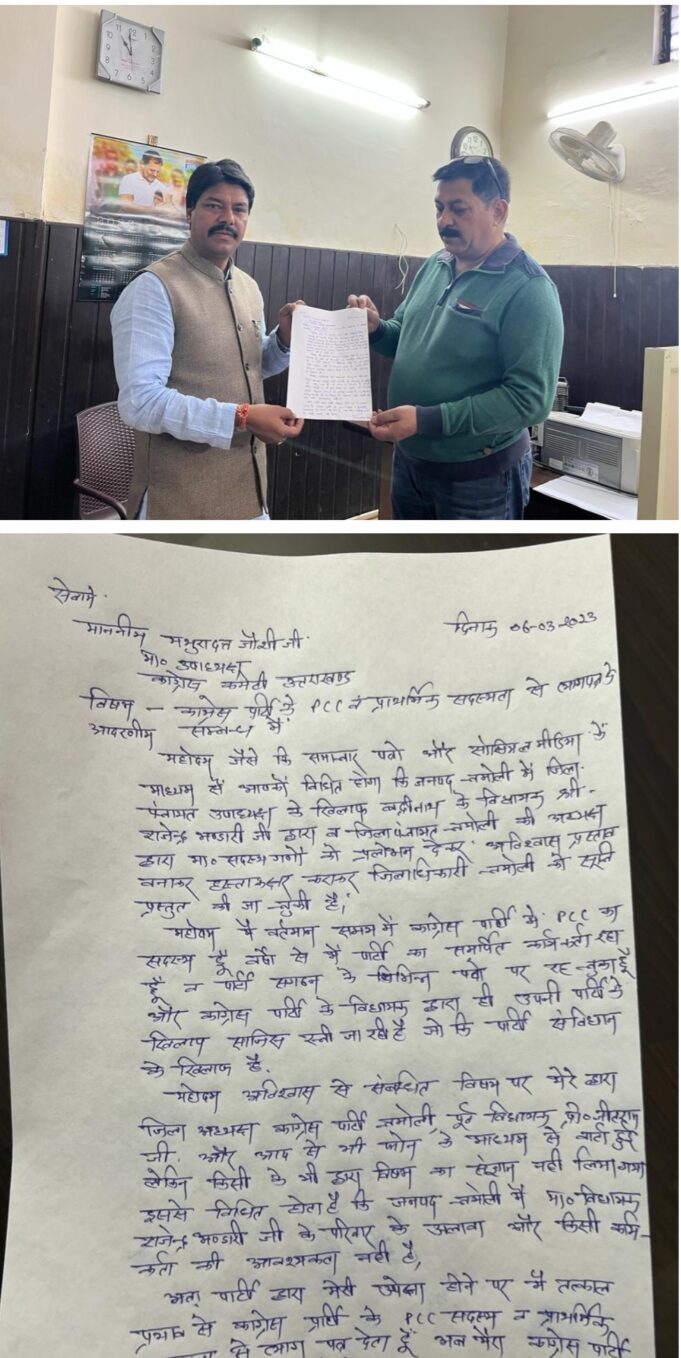 सेवामे
माननीय मथुरादत्त जोशी जी दिनांक 06-03-2023
मा० उपाध्यक्ष
कांग्रेस कमेटी उत्तराखण्ड
विषय - कांग्रेस पार्टी के PCC व प्राथमिक सदस्यता से त्यागपत्र के
सम्बन्ध में
आदरणीय
महोदय जैसे कि समाचार पत्रो और सोसियल मीडिया के
माध्यम से आपको विधित होगा कि जनपद चमोली में जिला
पंचायत उपाध्यक्ष के खिलाफ बद्रीनाथ के विधायक श्री
राजेन्द्र भण्डारी जी द्वारा व जिला पंचायत चमोली की अध्यक्ष
द्वारा मा० सदस्य गणों को प्रलोभन देकर अविश्वास प्रस्ताव
बनाकर हस्ताक्षर कराकर जिलाधिकारी चमोली को
प्रस्तुत की जा चुकी है,
महोदय मैं वर्तमान समय में कांग्रेस पार्टी में PCC का
सदस्य हूँ वर्षो से मैं पार्टी का समर्पित कार्यकर्ता रहा
हूँ व पार्टी संगठन के विभिन्न पदो पर रह चुका हूँ
और कांग्रेस पार्टी के विधायक द्वारा ही अपनी पार्टी के
खिलाप साजिस रची जा रही है जो कि पार्टी संविधान
के खिलाफ है.
महोदय अविश्वास से संबन्धित विषय पर मेरे द्वारा
जिला अध्यक्ष कांग्रेस पार्टी चमोली, पूर्व विधायक
जी. और आप से भी फोन के माध्यम से वार्ता हुई
लेकिन किसी के भी द्वारा विषय का संज्ञान नही लिया गया
इससे विधित होता है कि जनपद चमोली में मा० विधायक
राजेन्द्र भण्डारी जी के परिवार के अलावा और किसी कार्य-
कर्ता की आवश्यकता नही है,
अतः पार्टी द्वारा मेरी उपेक्षा होने पर मैं तत्काल
प्रभाव से कांग्रेस पार्टी के PCC सदस्य व प्राथमिक
से त्याग पत्र देता हूँ अब मेरा कांग्रेस पार्टी